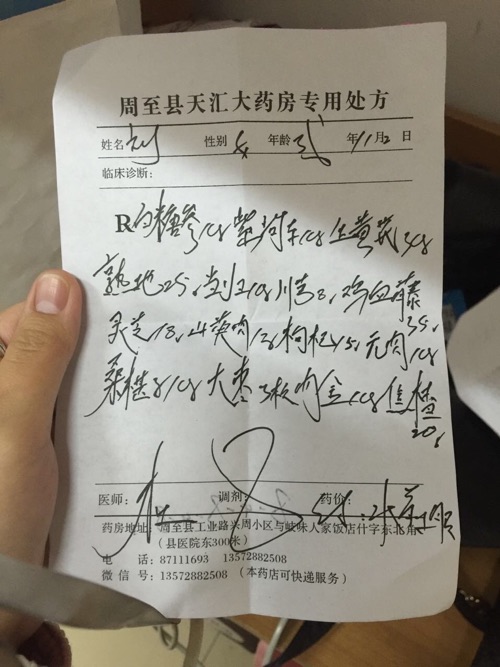 周至县天汇大药房专用处方
姓名 刘 性别 女 年龄 年11月2日
临床诊断：
R 白糖参10g 紫河车10g 生黄芪
熟地25g 当归10g 川芎8g 鸡血藤35g
灵芝18g 山萸肉12g 枸杞15g 元肉10g
桑椹子10g 大枣3枚 内金10g 焦楂20g
医师： 调剂： 药价：
水煎服
药房地址：周至县工业路兴周小区与岐味人家饭店什字东北角
（县医院东300米）
电 话：87111693 13572882508
微 信 号：13572882508 （本药店可快递服务）